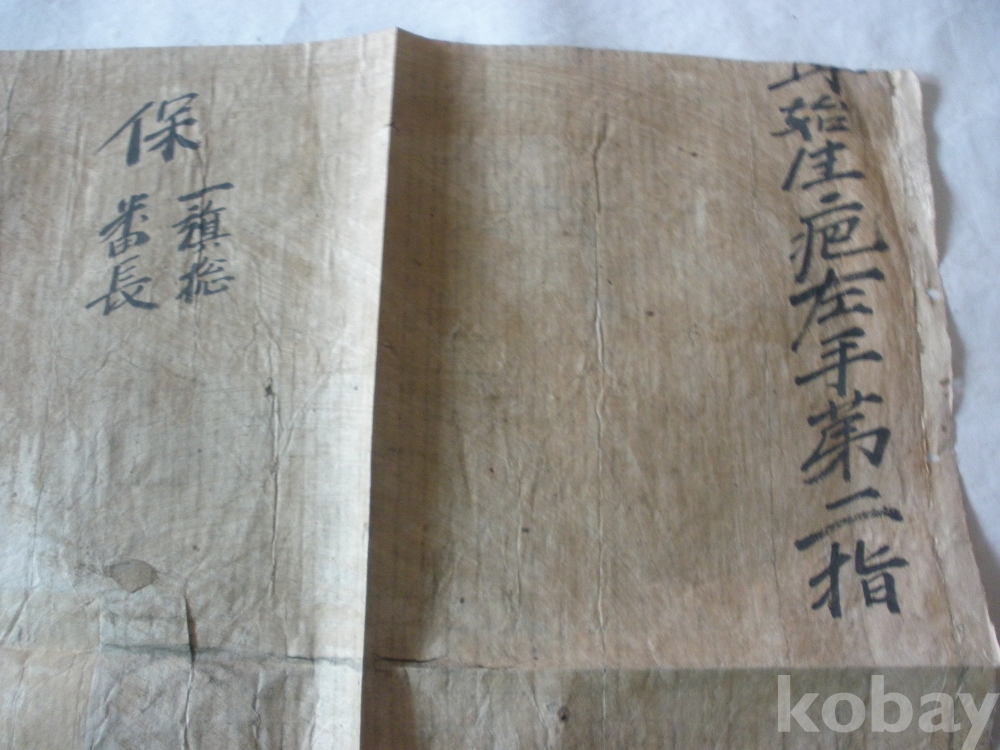 始生疤左手第二指
保
一旗摠
番長
kobay